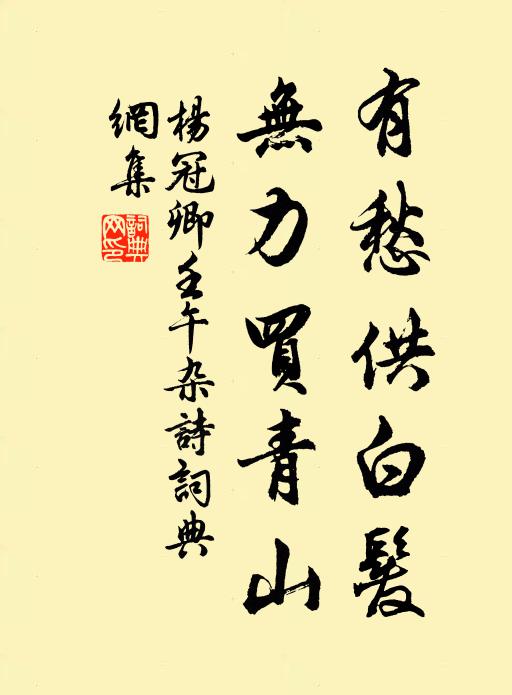 有愁供白髮
無力買青山
楊冠卿壬午杂詩詞典
網集
詞典網印